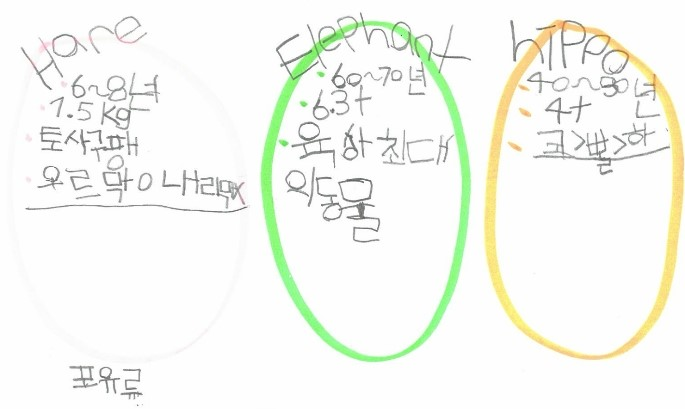 Hare
6~8년
1.5kg
토사구팽
오르막O 내리막X
Elephant
60~70년
6.3t
육상최대
의동물
hippo
40~50년
4t
코>뿔>하
포유류